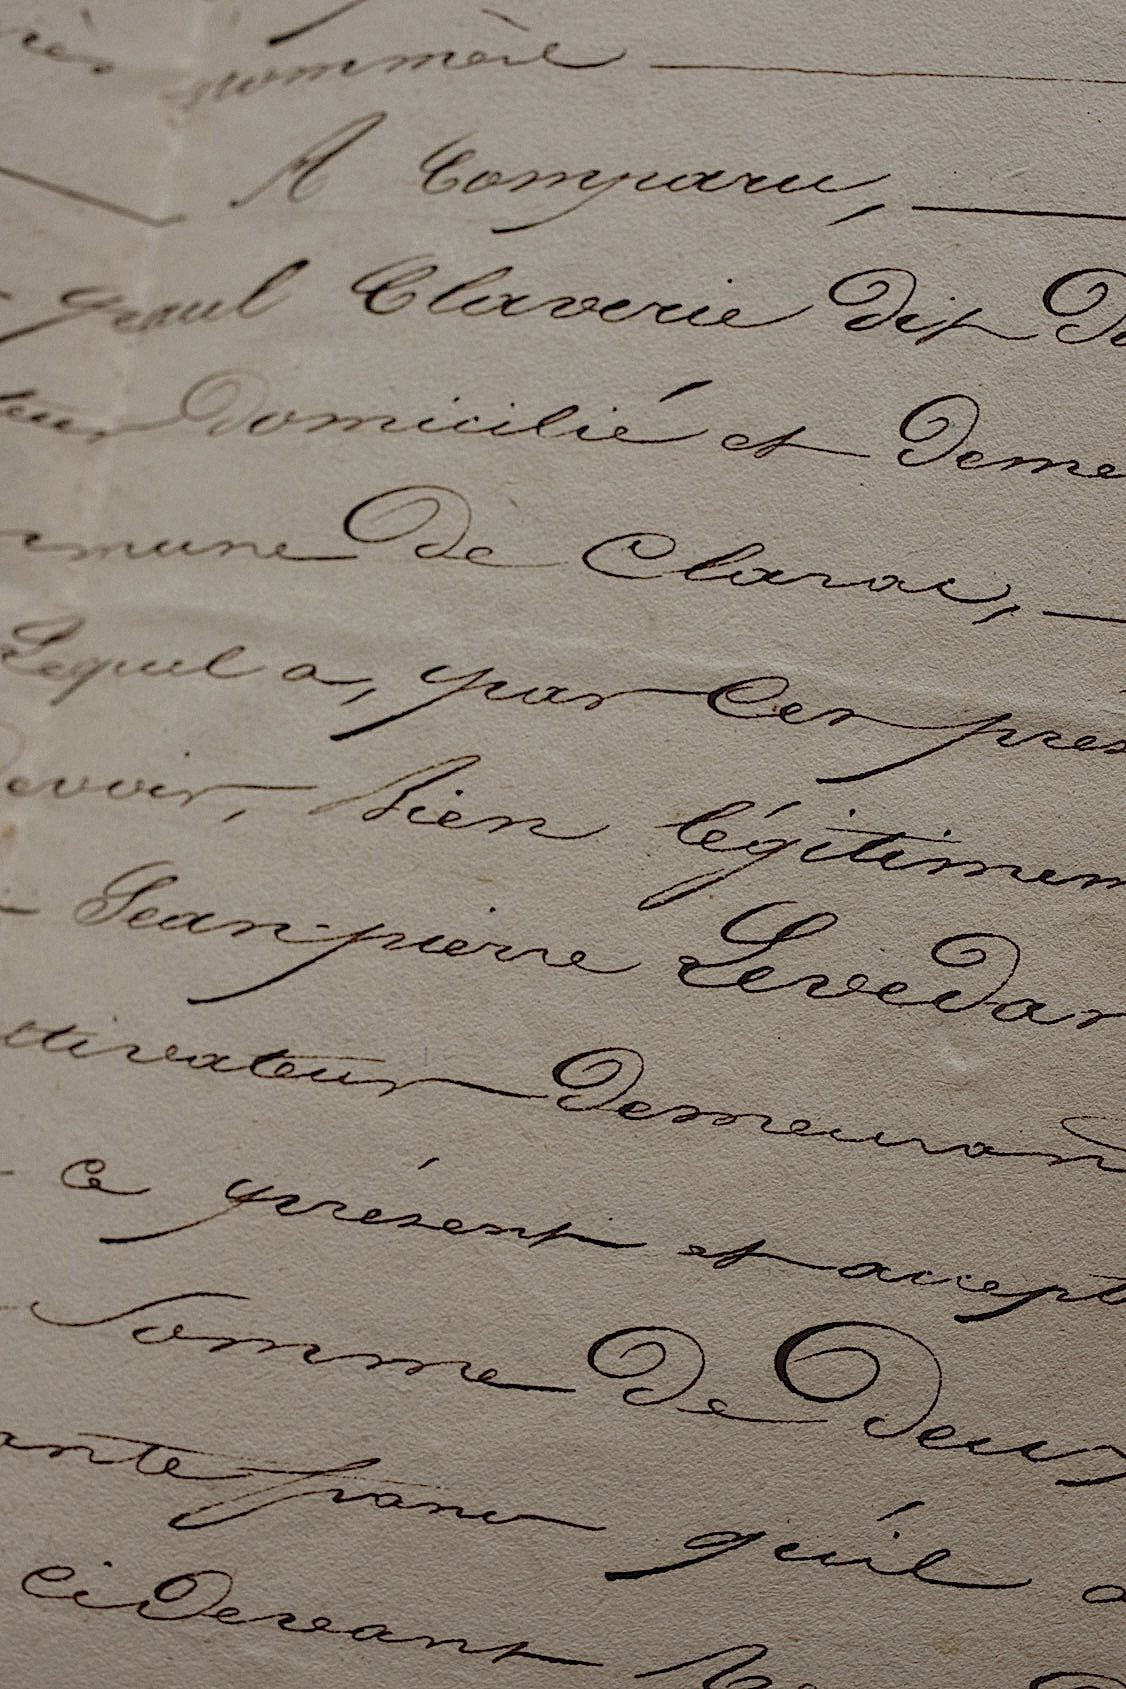 nommés
A Comparu,
paul Claverie dit
Domicilié et Deme
mmune De Clarac,
Lequel a, par Ces prés
Devoir, bien légitimem
Jean-pierre Levedan
ltivateur Demeurant
Ce présent et accept
Somme De Deux
ante francs qu'il a
ci Devant